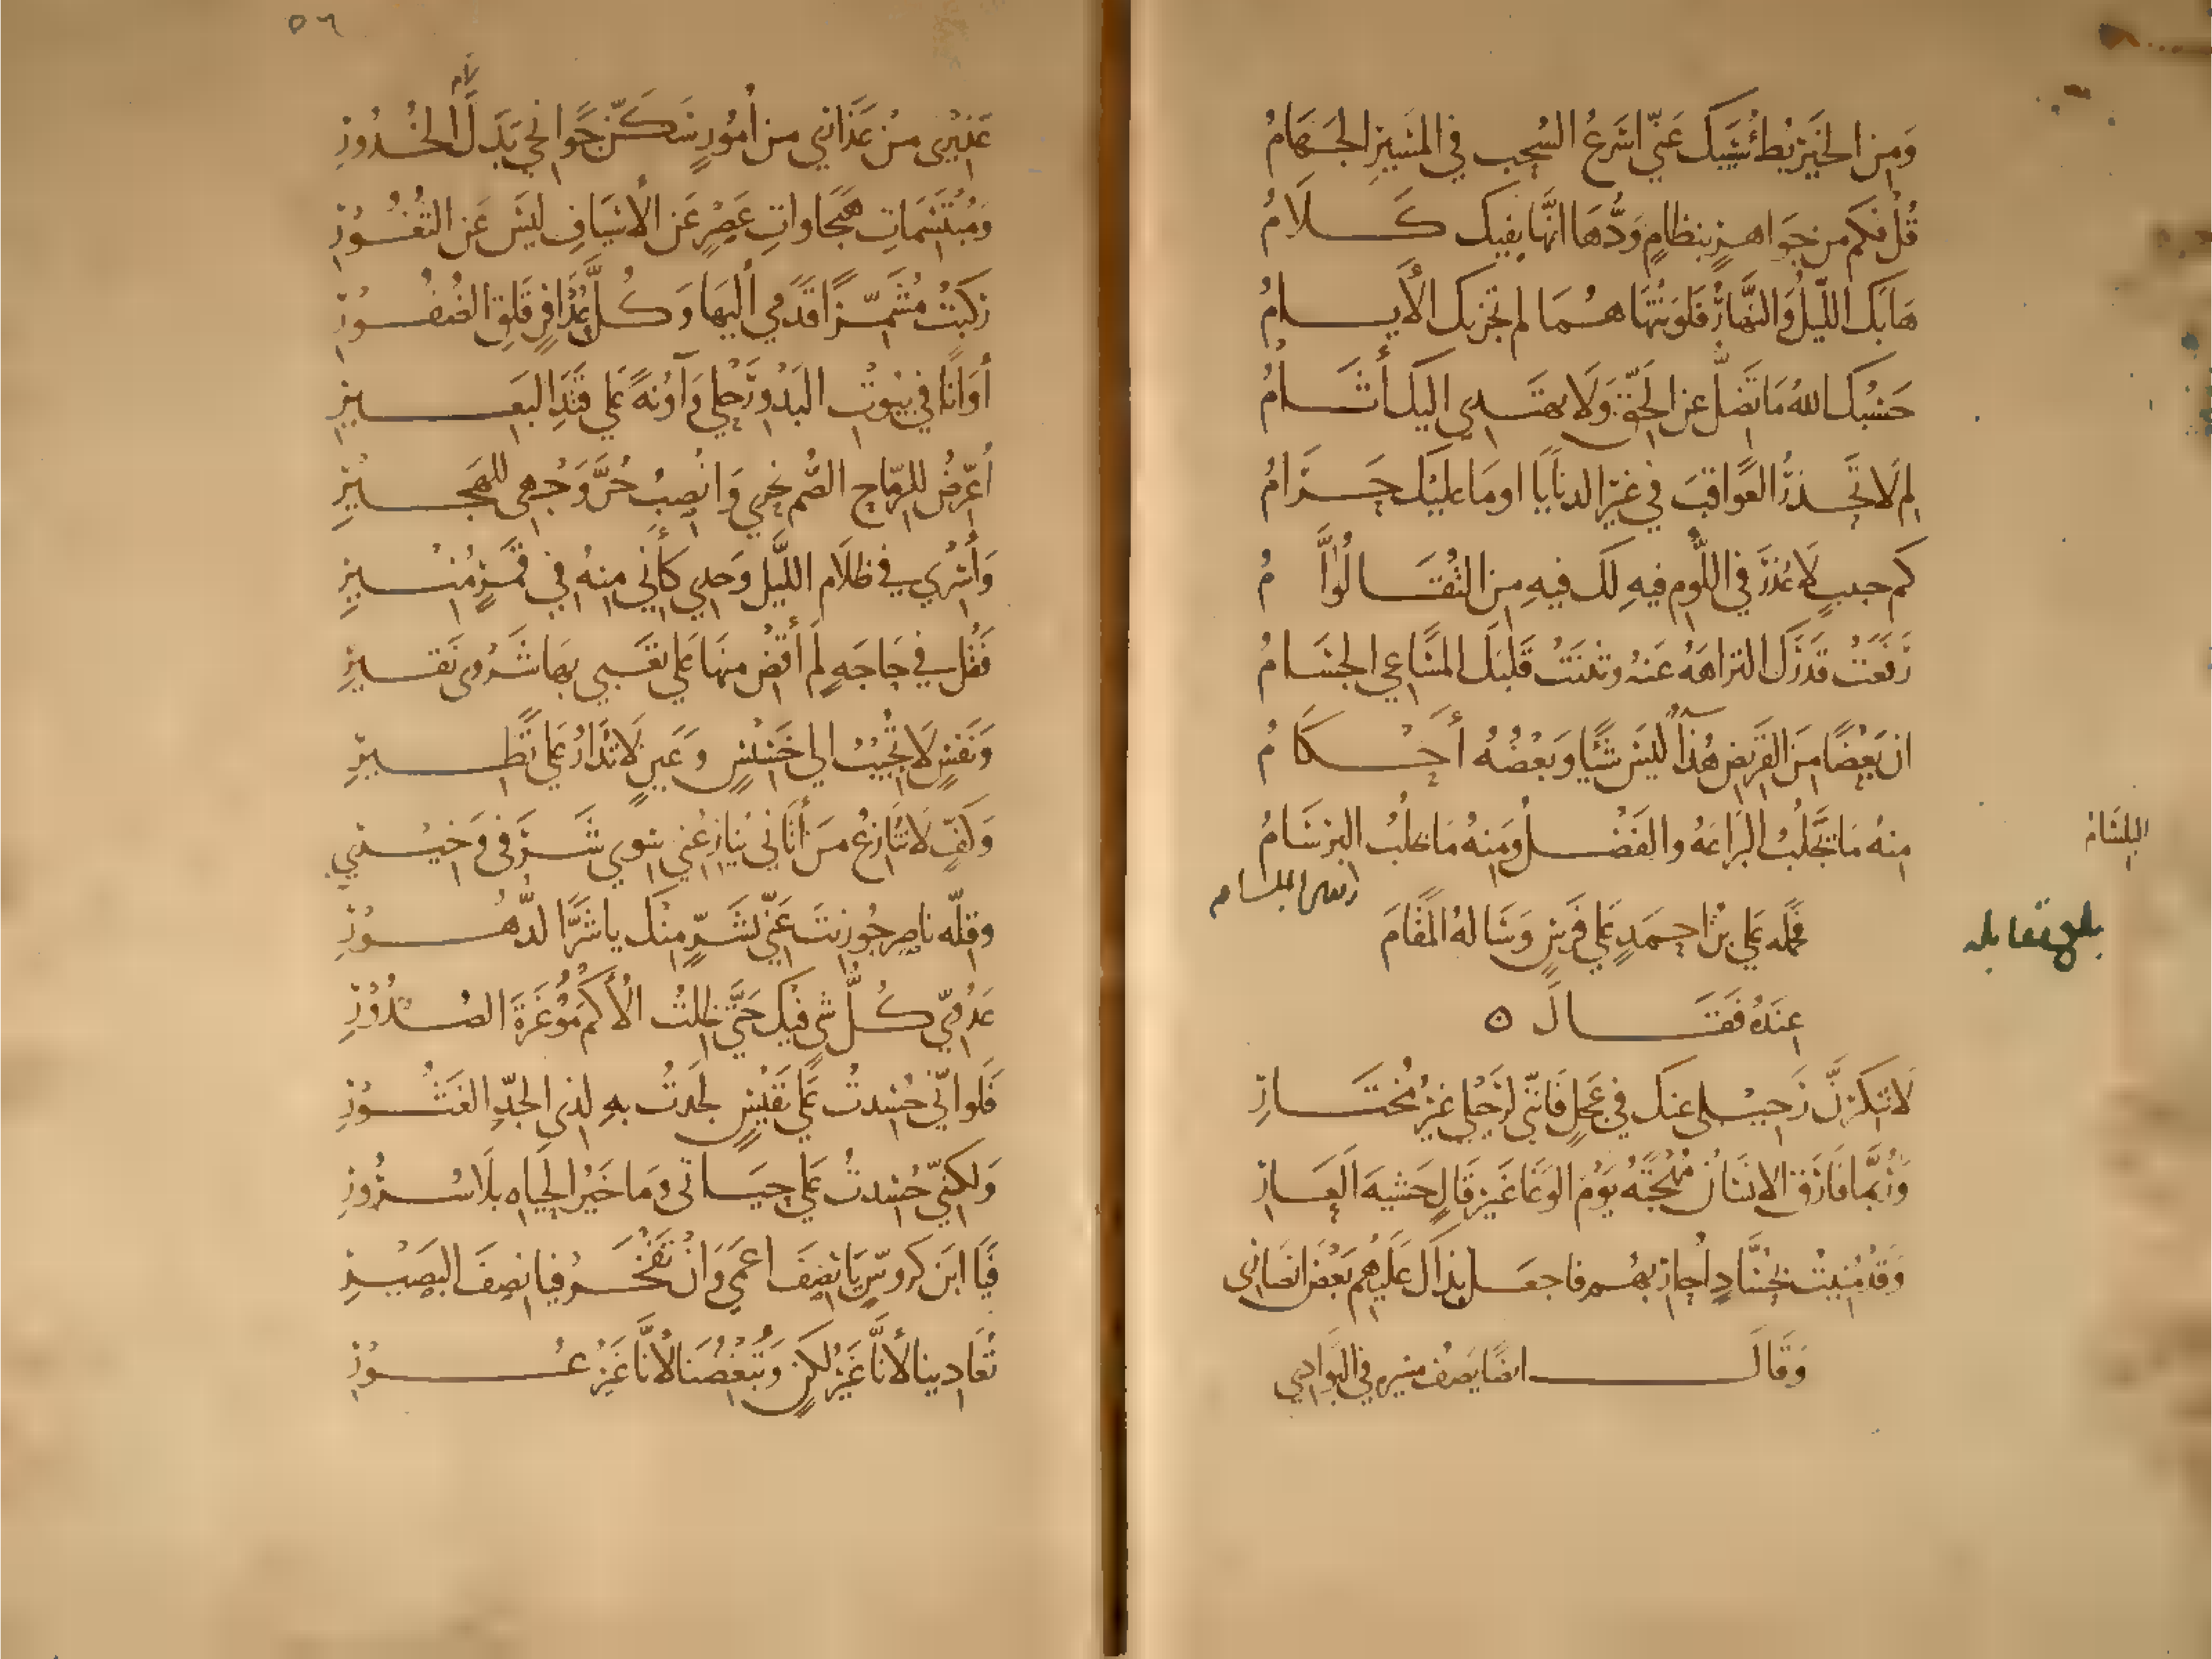 وَمِنَ الخَيرِ بُطْءُ سَيْبِكَ عَنّي اَسْرَعُ السُحبِ في المَسيرِ الجَهَامُ
قُلْ فكَم مِن جَوَاهِرٍ بنظامٍ وُدُّهَا انَّهَا بفيكَ كَلامُ
هَابَكَ اللّيلُ وَالنَّهارُ فَلَو تَنْهَاهُما لم تَجُز بكَ الأيامُ
حَسْبُكَ اللهُ مَا تَضِلُّ عن الحَقِّ وَلَا يهتَدي اليكَ أَثَامُ
لِم لَا تَحذَرُ العَوَاقِبَ في غَيرِ الدنَايَا او مَا عليْكَ حَرَامُ
كم حبيبٍ لَا عُذرَ في اللَّومِ فيهِ لَكَ فيهِ مِنَ التُقَى لُوَّامُ
رَفَعَتْ قَدْرَكَ النزاهَهُ عَنهُ وثَنَتْ قَلبَكَ المسَاعي الجسَامُ
ان بَعْضًا مِنَ القَريضِ هُذَآءٌ ليْسَ شَيًّا وَبَعْضُهُ أَحْكَامُ
منهُ مَا يَجلُبُ البَرَاعَهُ والفَضْلُ وَمِنهُ مَا يجلُبُ البِرسَامُ
البلسَام
بلغ مقابله
فحمله عَلي بنُ احمَدٍ عَلي فَرَسٍ وَسَالهُ المقَامَ
عِندَهُ فَقَالَ ه
لَا تُنكِرَنَّ رَحِيْلى عنكَ في عَجَلٍ فَانّني لرَحيْلي غَيْرُ مُختَارِ
وَرُبَّما فَارَقَ الانسَانُ مُهْجَتَهُ يَوْمَ الوَغَا غَيرَ قَالٍ خَشيَهَ العَارِ
وَقَدْ مُنِيْتُ بحُسَّادٍ اُحَاربُهُم فاجعَل نِدَاكَ عَلَيْهُم بَعْضَ انصَارى
وَقَالَ ايضًا يَصِفُ مسيره في البَوَادي
٥٦
عَذِيْرِى مِنْ عَذَارَي من امُورٍ سَكَنَّ جَوَانحِي بَدَلَ الخُدُورِ
وَمُبْتَسَمَاتِ هَيجَاواتِ عَصْرٍ عَن الأسيَافِ ليسَ عَن الثُغُورِ
رَكبْتُ مُشَمِّرًا قَدَمي أليهَا وَكُلَّ عُذَافِرٍ قَلِقِ الضُفُورِ
أوَانًا في بيُوتِ البَدْوِ رَحْلي وَآوِنَهً عَلي قتَدِ البَعيرِ
أُعَرِّضُ للرِمَاحِ الصُّمِ نحري وَانْصِبُ حُرَّ وَجْهي للهَجيرِ
وَأسْرِي في ظلَامِ اللّيلِ وَحدي كَأَنّي مِنهُ في قمَرٍ مُنيرِ
فَقُل في حَاجَهٍ لَم أقْضِ منهَا عَلي تَعَبي بهَا شَرْوى نَقيرِ
وَنَفسٍ لَا تُجيْبُ الي خَسيسٍ وَعَينٍ لَا تُدَارُ عَلي نَظيرِ
وَكَفٍّ لَا تنَازعُ مَن أتَاني يُنَازِعُني سِوي شَرَفي وَخيْري
وقِلّه ناصرٍ جُوزيتَ عَنّي بشَرٍّ مِنكَ يا شَرَّ الدُّهُورِ
عَدُوّي كُلُّ شيٍ فيكَ حَتَّي لخِلْتُ الأُكْمَ مُوْغَرَةَ الصُدُوْرِ
فَلَو انّي حُسِدتُ عَلي نَفيْسٍ لجُدتُ بهِ لِذِي الجدِّ العَثُورِ
وَلكِنّي حُسِدتُ عَلي حيَاتى وَمَا خَيْرُ الحيَاهِ بلَا سُرُورِ
فَيَا ابنَ كَروَّسٍ يَا نِصفَ اعمَي وَان تَفْخَر فيا نصفَ البَصيْرِ
تُعَادينا لأنَّا غَيْرُ لُكْنٍ وَتُبغِضُنَا لأنَّا غَيْرُ عُورِ